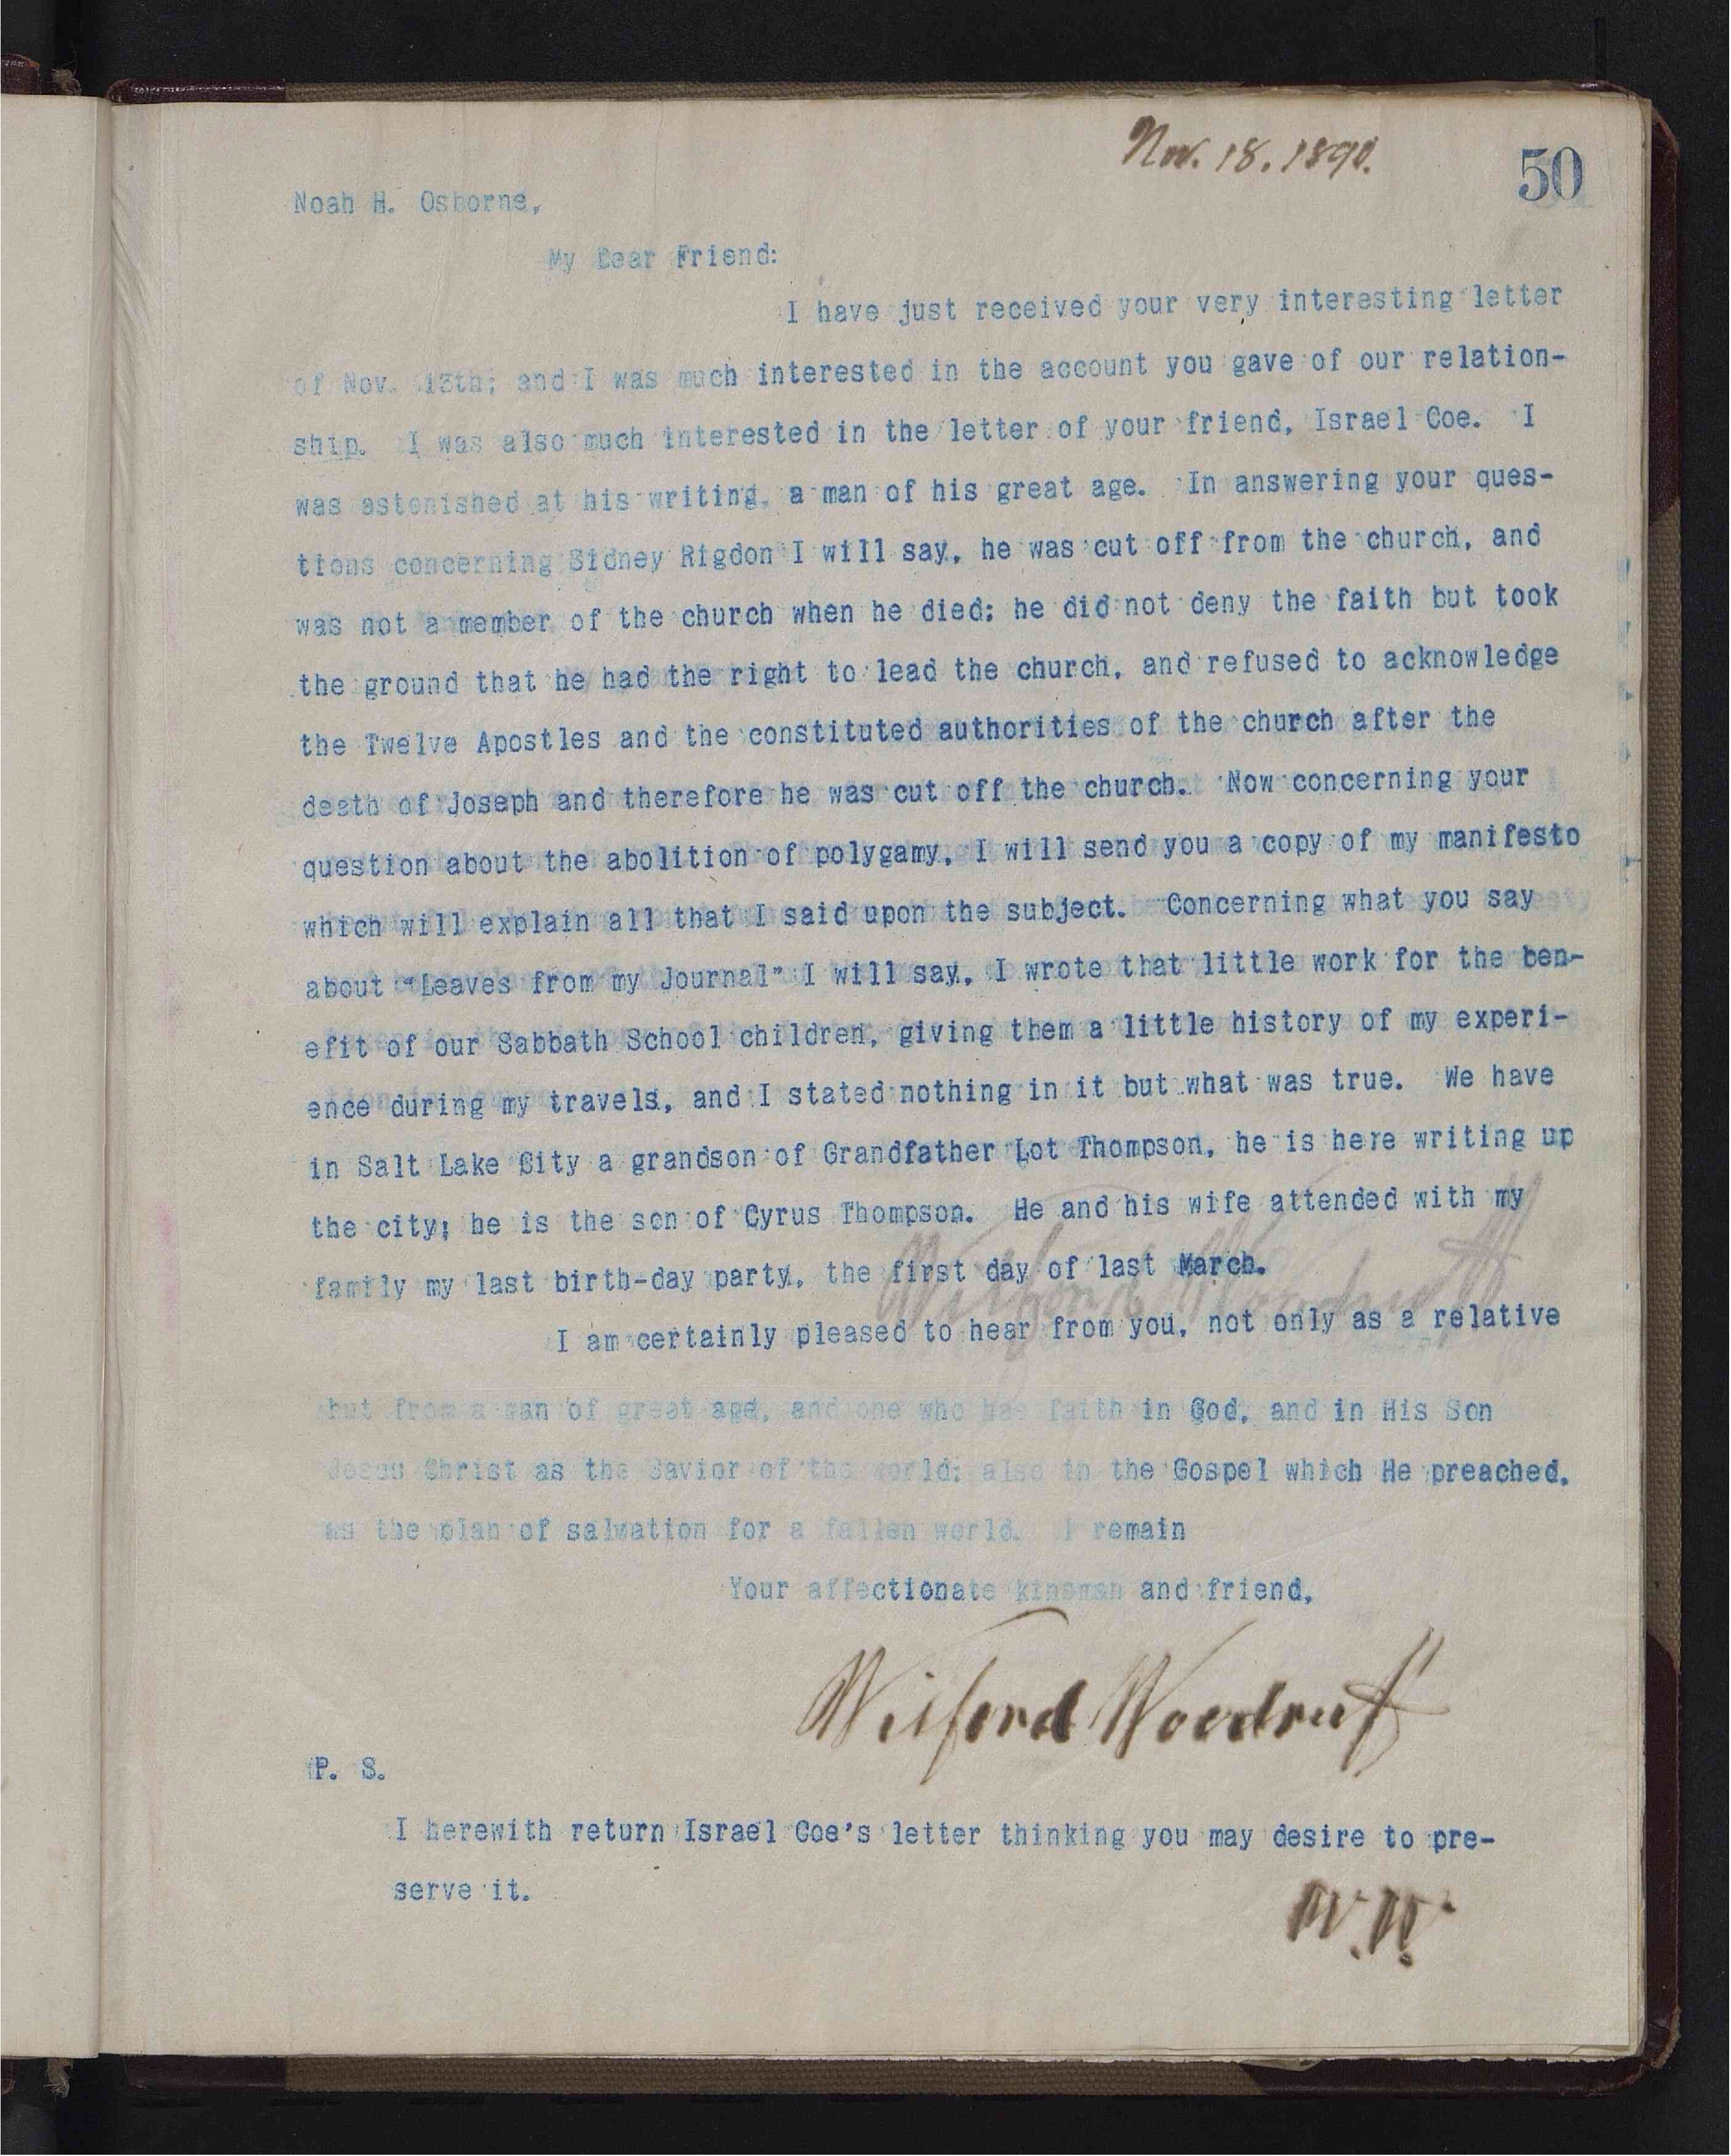 Nov. 18. 1890.
50
Noah H. Osborne,
My Dear Friend:
I have just received your very interesting letter
of Nov. 13th; and I was much interested in the account you gave of our relation-
ship. I was also much interested in the letter of your friend, Israel Coe. I
was astonished at his writing, a man of his great age. In answering your ques-
tions concerning Sidney Rigdon I will say, he was cut off from the church, and
was not a member of the church when he died; he did not deny the faith but took
the ground that he had the right to lead the church, and refused to acknowledge
the Twelve Apostles and the constituted authorities of the church after the
death of Joseph and therefore he was cut off the church. Now concerning your
question about the abolition of polygamy, I will send you a copy of my manifesto
which will explain all that I said upon the subject. Concerning what you say
about "Leaves from my Journal" I will say, I wrote that little work for the ben-
efit of our Sabbath School children, giving them a little history of my experi-
ence during my travels, and I stated nothing in it but what was true. We have
in Salt Lake City a grandson of Grandfather Lot Thompson, he is here writing up
the city; he is the son of Cyrus Thompson. He and his wife attended with my
family my last birth-day party, the first day of last March.
I am certainly pleased to hear from you, not only as a relative
but from a man of great age, and one who has faith in God, and in His Son
Jesus Christ as the Savior of the world; also in the Gospel which He preached,
as the plan of salvation for a fallen world. I remain
Your affectionate kinsman and friend,
Wilford Woodruff
P. S.
I herewith return Israel Coe's letter thinking you may desire to pre-
serve it.
W. W.